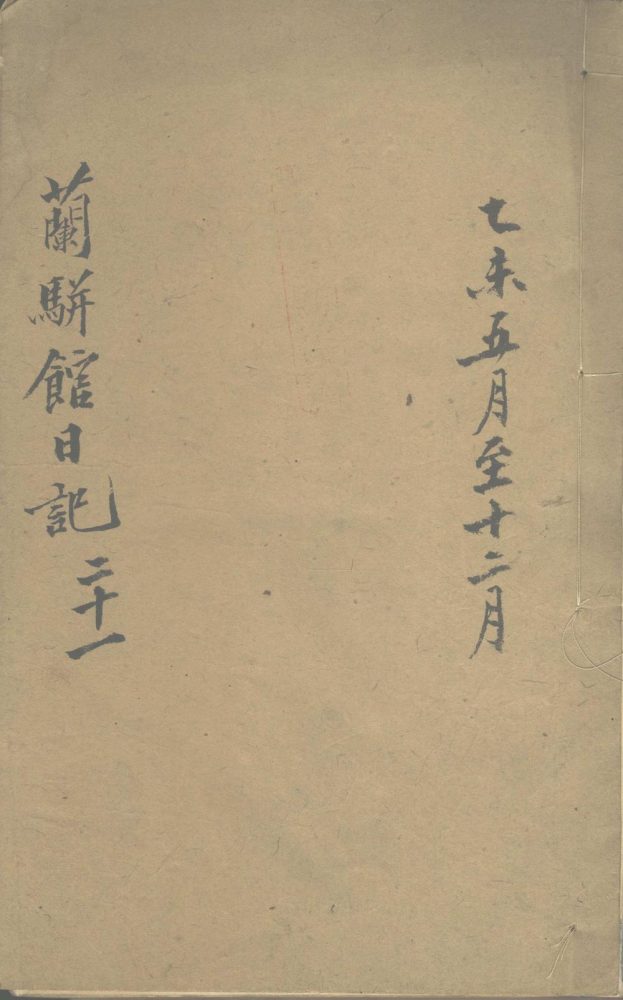 乙未五月至十二月
蘭駢館日記 二十一